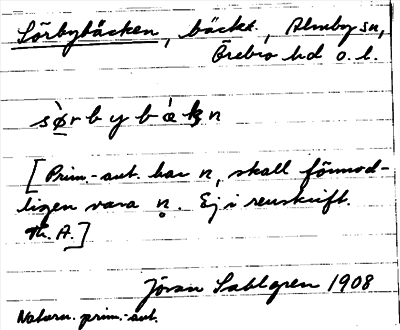 Sörbybäcken, bäck, Almby sn,
Örebro hd o. l.
[Prim.-ant. har n, skall förmod-
ligen vara n̥. Ej i renskrift.
Th. A.]
Jöran Sahlgren 1908
Naturn. prim.-ant.